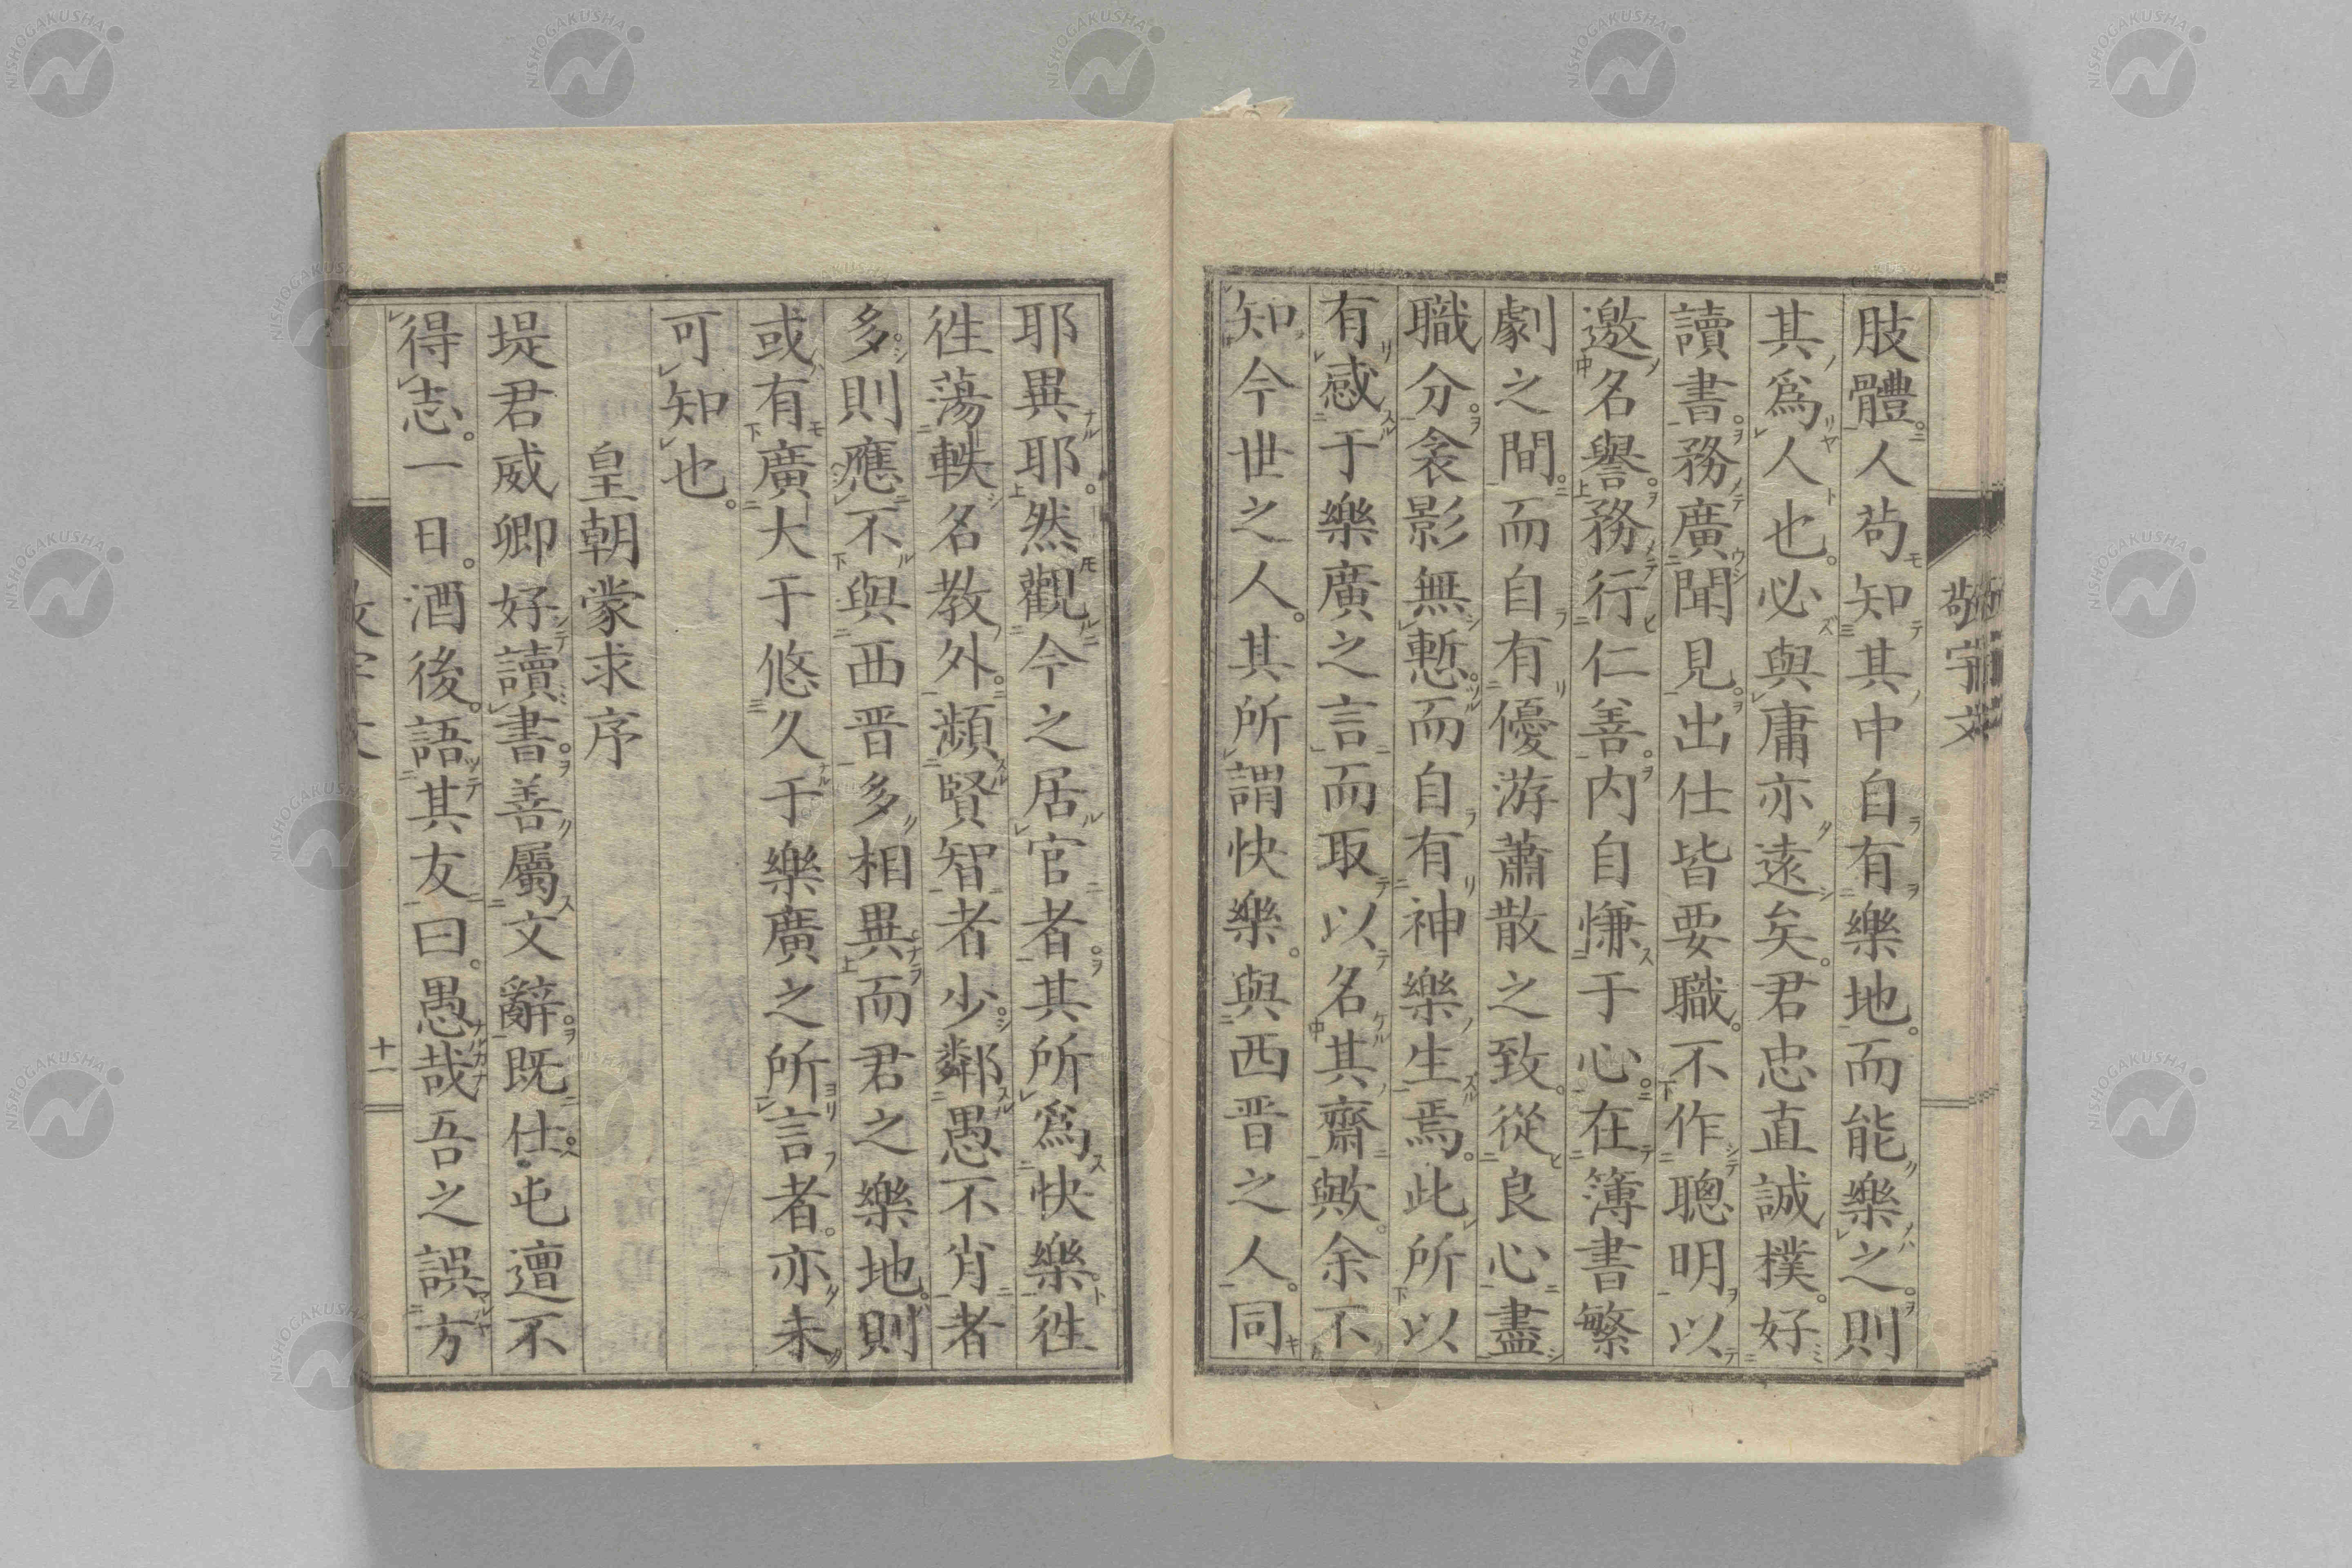 肢體人苟知其中自有樂地而能樂之則
其爲人也必與庸亦遠矣君忠直誠樸好
讀書務廣聞見出仕皆要職不作聰明以
邀名譽務行仁善內自慊于心在簿書繁
劇之間而自有優游蕭散之致從良心盡
職分衾影無慙而自有神樂生焉此所以
有感于樂廣之言而取以名其齋歟余不
知今世之人其所謂快樂與西晋之人同
耶異耶然觀今之居官者其所爲快樂徃
徃蕩軼名教外瀕賢智者少鄰愚不肖者
多則應不與西晋多相異而君之樂地則
或有廣大于悠久于樂廣之所言者亦未
可知也
皇朝蒙求序
堤君威卿好讀書善屬文辭既仕屯邅不
得志一日酒後語其友曰愚哉吾之誤方
敬宇文
十一
NISHOGAKUSHA